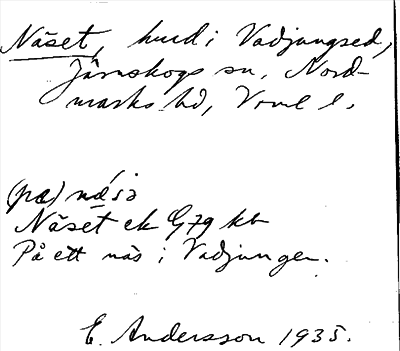 Näset, hmd i Vadjungsed,
Järnskogs sn, Nord-
marks hd, Vrml l.
(pæ) nä́sə
Näset ek G79 kb
På ett näs i Vadjungen.
E. Andersson 1935.